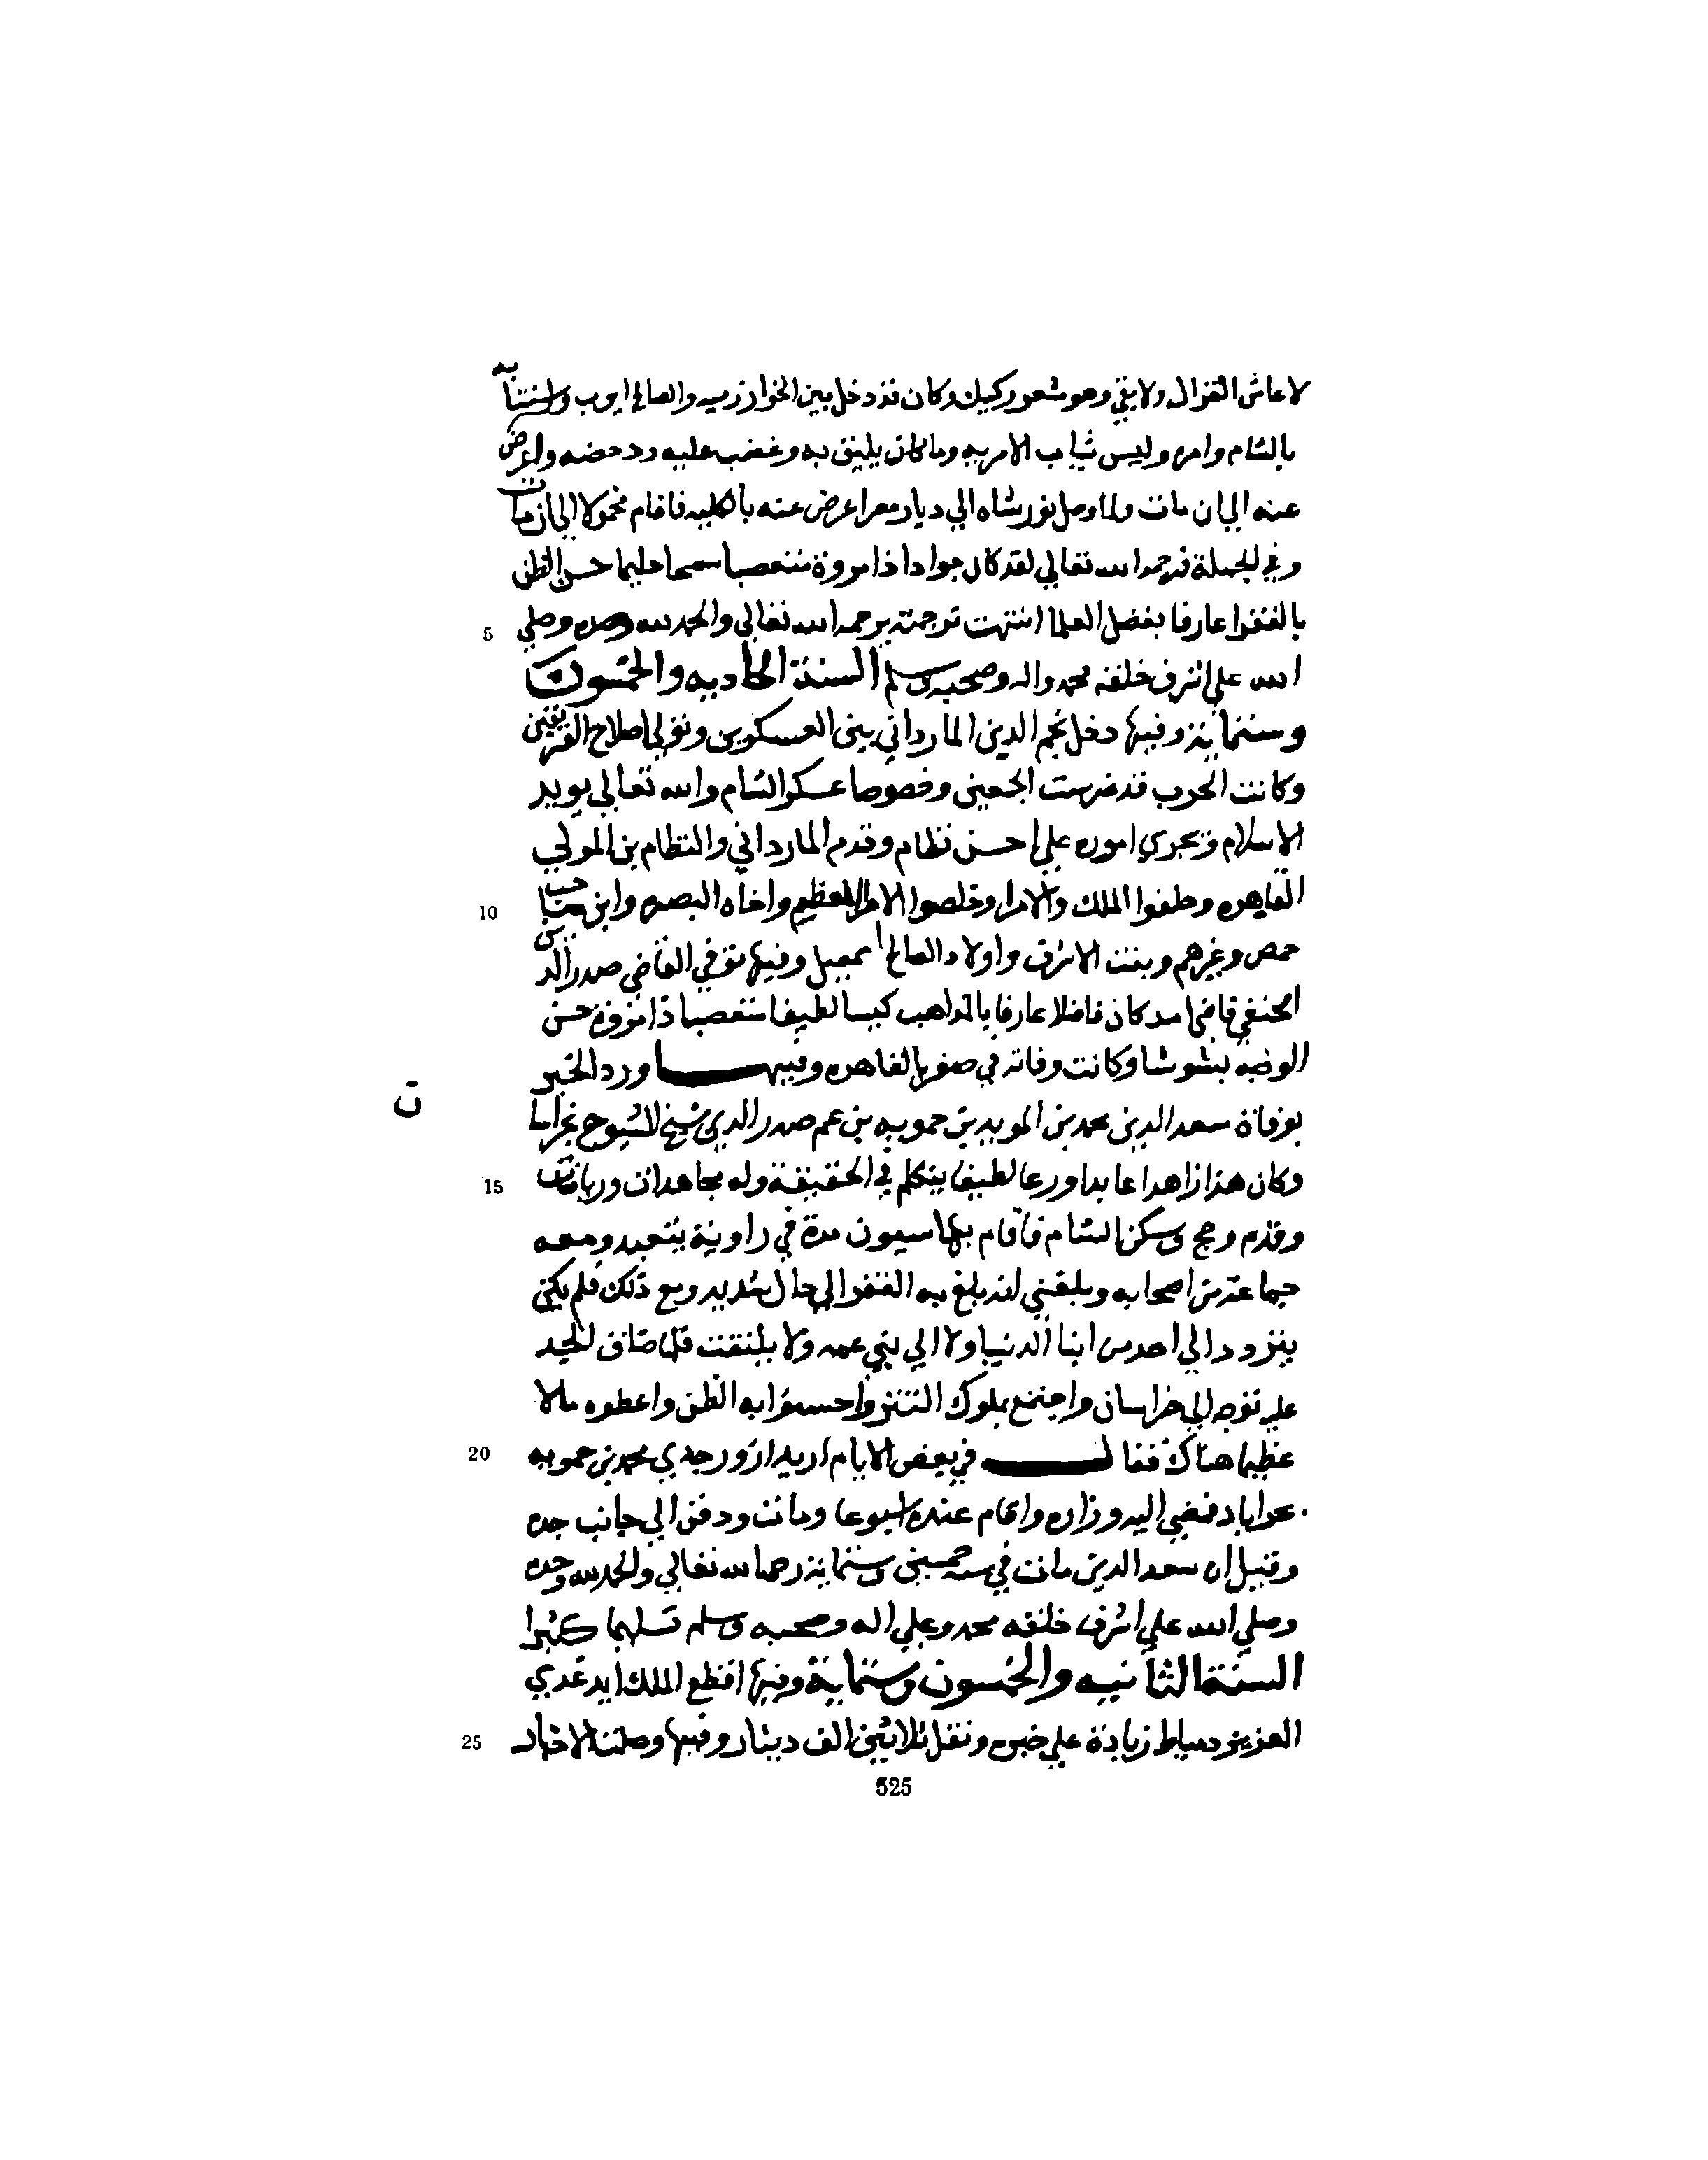 لا عاش القوال ولا بقي وهو شعر ركيك وكان قد دخل بين الخوارزميه والصالح ايوب واستنابه
بالشام وامره ولبس ثياب الامريه وما كان يليق به وغضب عليه ودحضه واعرض
عنه الي ان مات ولما وصل تورشاه الي ديار مصر اعرض عنه بالكليه فاقام مخمولا الي ان مات
وفي الجملة فرحمه الله تعالي لقد كان جوادا ذا مروة متعصبا سمحا حليما حسن الظن
بالفقرا عارفا بفضل العلما انتهت ترجمته يرحمه الله تعالي والحمد لله وحده وصلي
5
الله علي اشرف خلقه محمد واله وصحبه وسلم السنة الحاديه والخمسون
وستماية وفيها دخل نجم الدين المارداني بين العسكرين وتولي اصلاح الفريقين
وكانت الحرب قد ضرست الجمعين وخصوصا عسكر الشام والله تعالي يويد
الاسلام وتجري اموره علي احسن نظام وقدم المارداني والنظام بن المولي
القاهره وحلفوا الملك والامرا وخلصوا الامرا المعظم واخاه البصره وابن صاحب
10
حمص وغيرهم وبنت الاشرف واولاد الصالح اسمعيل وفيها توفي القاضي صدر الدين
الحنفي قاضي امد كان فاضلا عارفا بالمذاهب كيسا لطيفا متعصبا ذا مروة حسن
الوجه بشوشا وكانت وفاته في صفر بالقاهره وفيها ورد الخبر
ت
بوفاة سعد الدين محمد بن المويد بن حمويه بن عم صدر الدين شيخ الشيوخ بخراسان
وكان هذا زاهدا عابدا ورعا لطيفا يتكلم في الحقيقة وله مجاهدات ورياضات
15
وقدم وحج وسكن الشام فاقام بقاسيون مدة في زاوية يتعبد ومعه
جماعة من اصحابه وبلغني انه بلغ به الفقر الي حال شديد ومع ذلك فلم يكن
يتردد الي احد من ابنا الدنيا ولا الي بني عمه ولا يلتفت فلما ضاق الحيد
عليه توجه الي خراسان واجتمع بملوك التتر واحسنوا به الظن واعطوه مالا
عظيما هناك فقال في بعض الايام اريد ازور جدي محمد بن حمويه
20
بحراباد فمضي اليه وزاره واقام عنده اسبوعا ومات ودفن الي جانب جده
وقيل ان سعد الدين مات في سنة خمسين وستماية رحمه الله تعالي والحمد لله وحده
وصلي الله علي اشرف خلقه محمد وعلي اله وصحبه وسلم تسليما كثيرا
السنة الثانيه والخمسون وستماية وفيها اقطع الملك ايدغدي
العزيزي دمياط زيادة علي خبزه ونقل ثلاثين الف دينار وفيها وصلت الاخبار
25
525